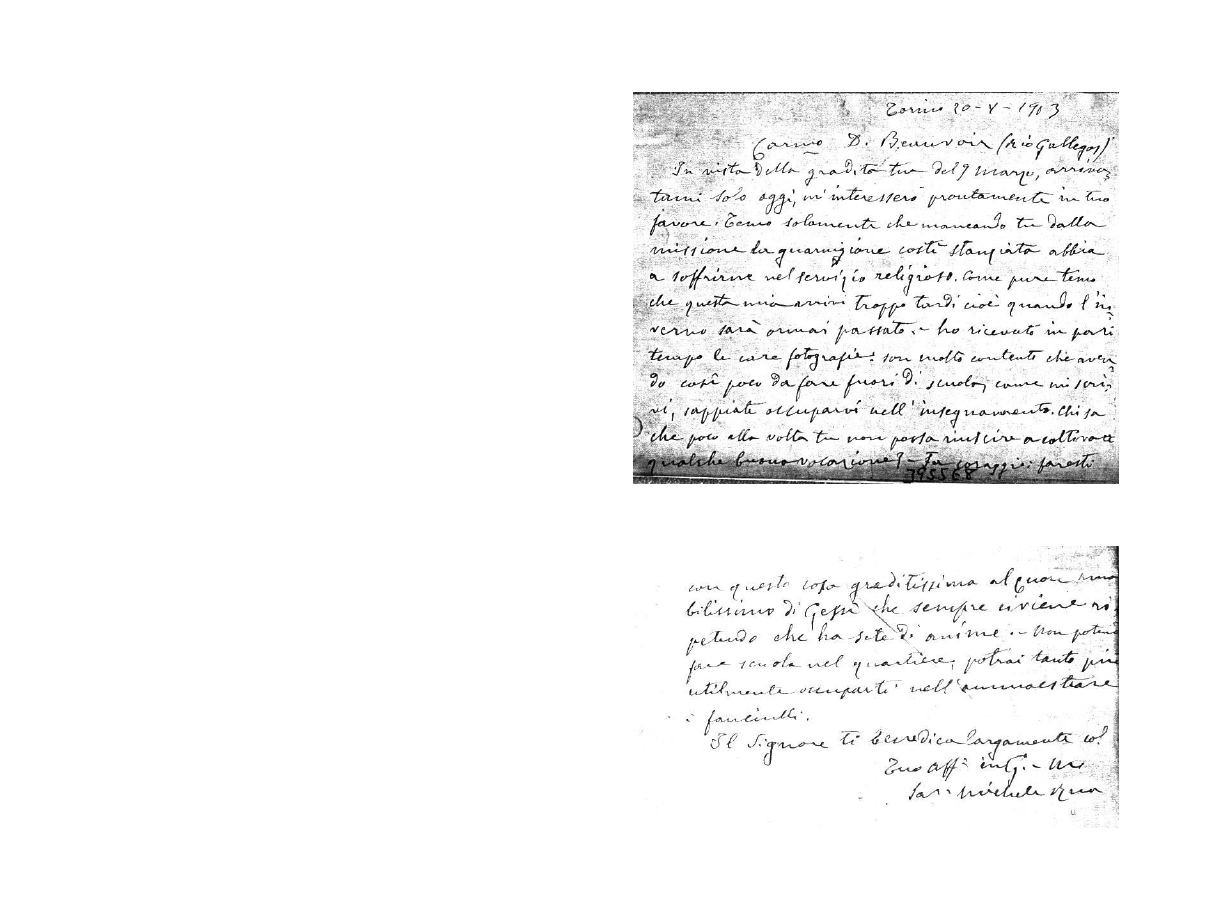 Torino 20-V-1903
Carmo D. Beauvoir (Rio Gallegos)
In vista della gradita tua del 9 marzo, arriva-
tami solo oggi, m'interesserò prontamente in tuo
favore. Temo solamente che mancando tu dalla
missione la guarnigione costì stanziata abbia
a soffrirne nel servizio religioso. Come pure temo
che questa mia arrivi troppo tardi cioè quando l'in-
verno sarà ormai passato. - ho ricevuto in pari
tempo le care fotografie: son molto contento che aven-
do così poco da fare fuori di scuola, come mi scri-
vi, sappiate occuparvi nell'insegnamento. Chi sa
che poco alla volta tu non possa riuscire a coltivare
qualche buona vocazione? - Fa coraggio: faresti
395568
con questo cosa graditissima al Cuore
bilissimo di Gesù che sempre ci viene ri
petendo che ha sete di anime. - Non poten
fare scuola nel quartiere, potrai tanto più
utilmente occuparti nell'ammaestrare
i fanciulli.
Il Signore ti benedica largamente col
Tuo aff. in G. - M.
Sac. Michele Rua